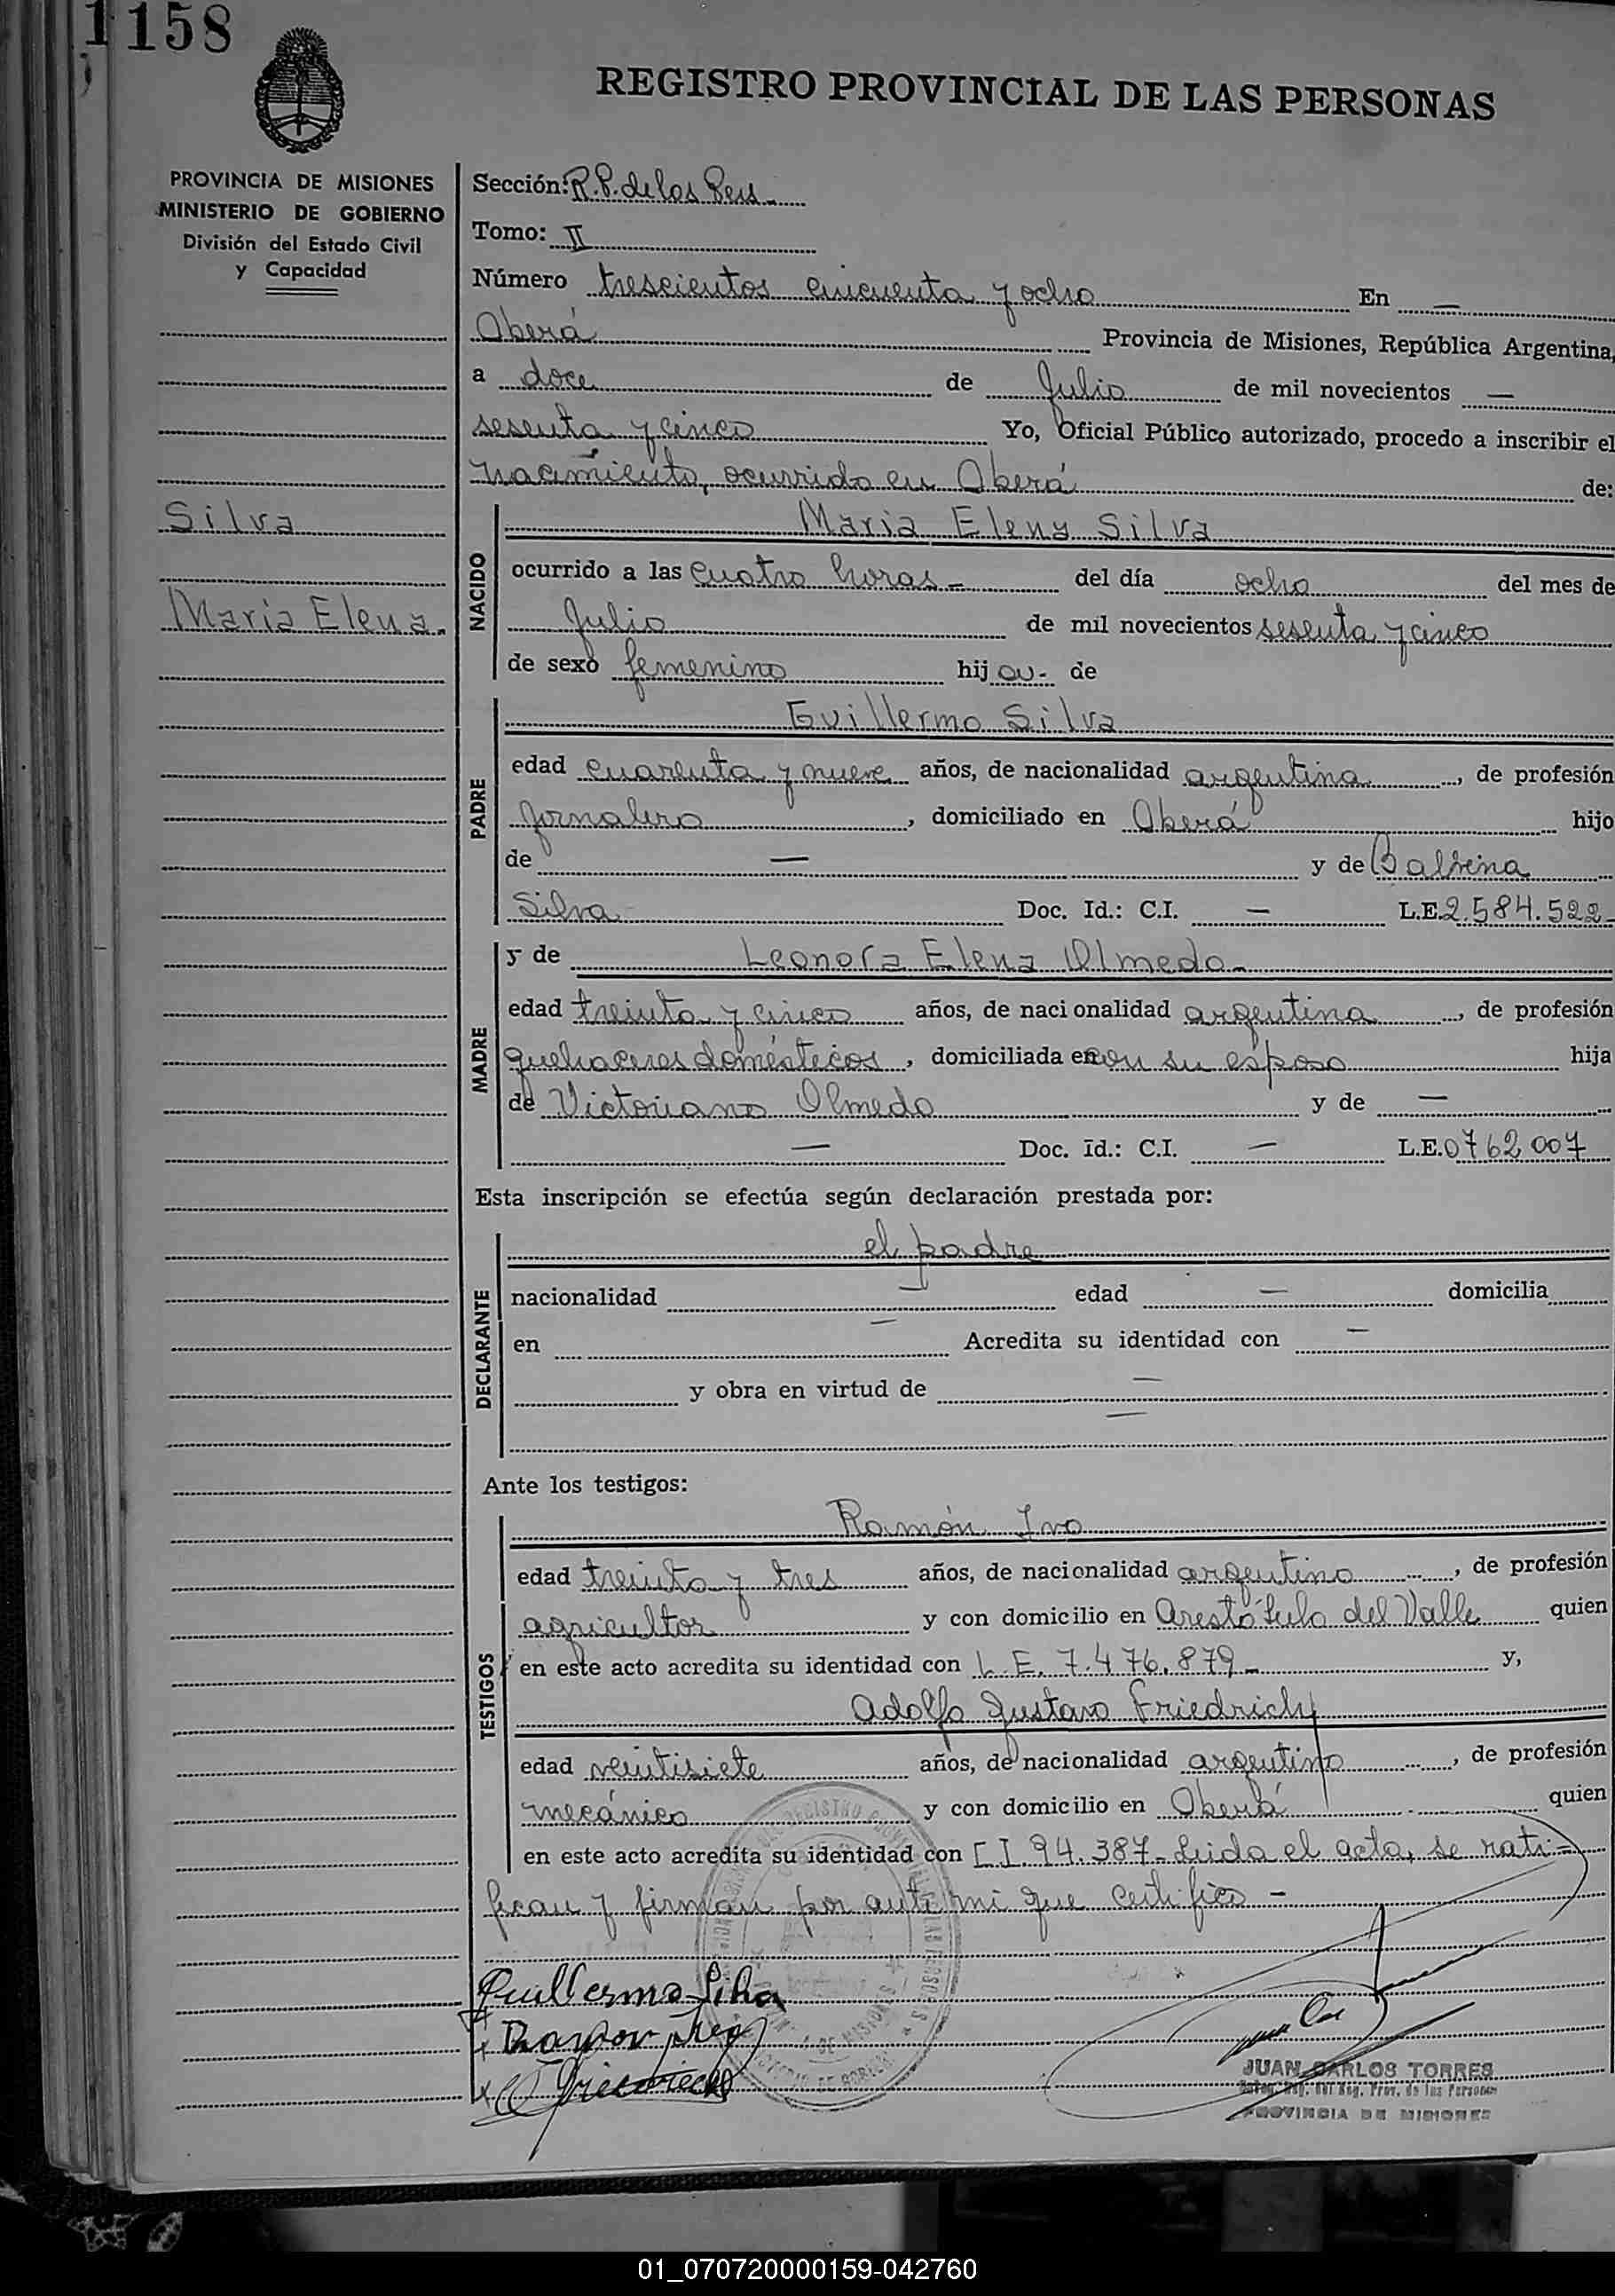 1158
REGISTRO PROVINCIAL DE LAS PERSONAS
PROVINCIA DE MISIONES
MINISTERIO DE GOBIERNO
División del Estado Civil
y Capacidad
Silva
Maria Elena.
Sección: R.P. de las Pers.
Tomo: II
Número trescientos cincuenta y ocho En —
Oberá Provincia de Misiones, República Argentina,
a doce de Julio de mil novecientos —
sesenta y cinco Yo, Oficial Público autorizado, procedo a inscribir el
nacimiento, ocurrido en Oberá de:
NACIDO
Maria Elena Silva
ocurrido a las cuatro horas - del día ocho del mes de
Julio de mil novecientos sesenta y cinco
de sexo femenino hij a - de
PADRE
Guillermo Silva
edad cuarenta y nueve años, de nacionalidad argentina, de profesión
Jornalero, domiciliado en Oberá hijo
de — y de Balbina
Silva Doc. Id.: C.I. — L.E. 2.584.522-
MADRE
y de Leonora Elena Olmedo -
edad treinta y cinco años, de nacionalidad argentina, de profesión
quehaceres domésticos, domiciliada en con su esposo hija
de Victoriano Olmedo y de —
— Doc. Id.: C.I. — L.E. 0762007
Esta inscripción se efectúa según declaración prestada por:
DECLARANTE
el padre
nacionalidad — edad — domicilia
en — Acredita su identidad con —
y obra en virtud de —
—
Ante los testigos:
TESTIGOS
Ramón Ivo
edad treinta y tres años, de nacionalidad argentino, de profesión
agricultor y con domicilio en Arestótulo del Valle quien
en este acto acredita su identidad con L.E. 7.476.879 - y,
Adolfo Gustavo Friedrich
edad veintisiete años, de nacionalidad argentino, de profesión
mecánico y con domicilio en Oberá quien
en este acto acredita su identidad con C.I. 94.387- Leida el acta, se rati-
fican y firman por ante mi que certifico -
Guillermo Silva
JUAN CARLOS TORRES
PROVINCIA DE MISIONES
01_070720000159-042760